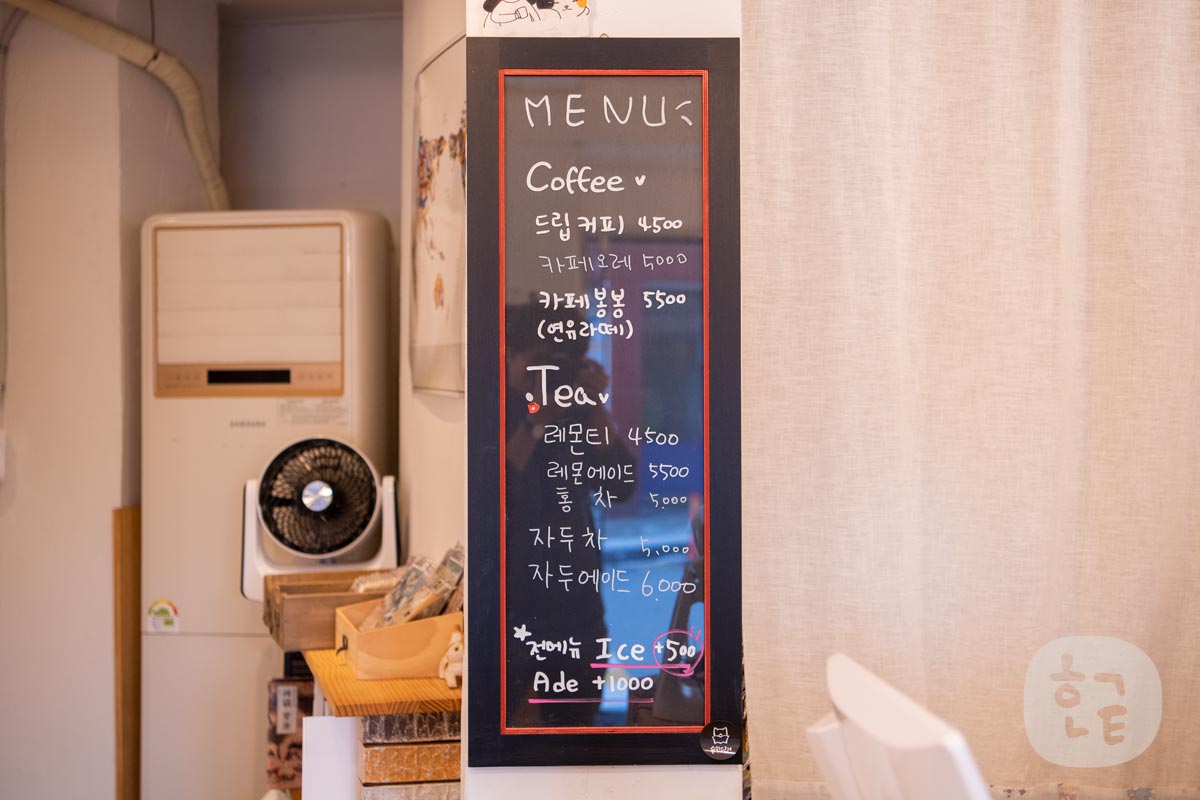 MENU
Coffee
드립커피 4500
카페오레 5000
카페봉봉 5500
(연유라떼)
Tea
레몬티 4500
레몬에이드 5500
홍 차 5,000
자두차 5,000
자두에이드 6,000
전메뉴 Ice +500
Ade +1000
SAMSUNG